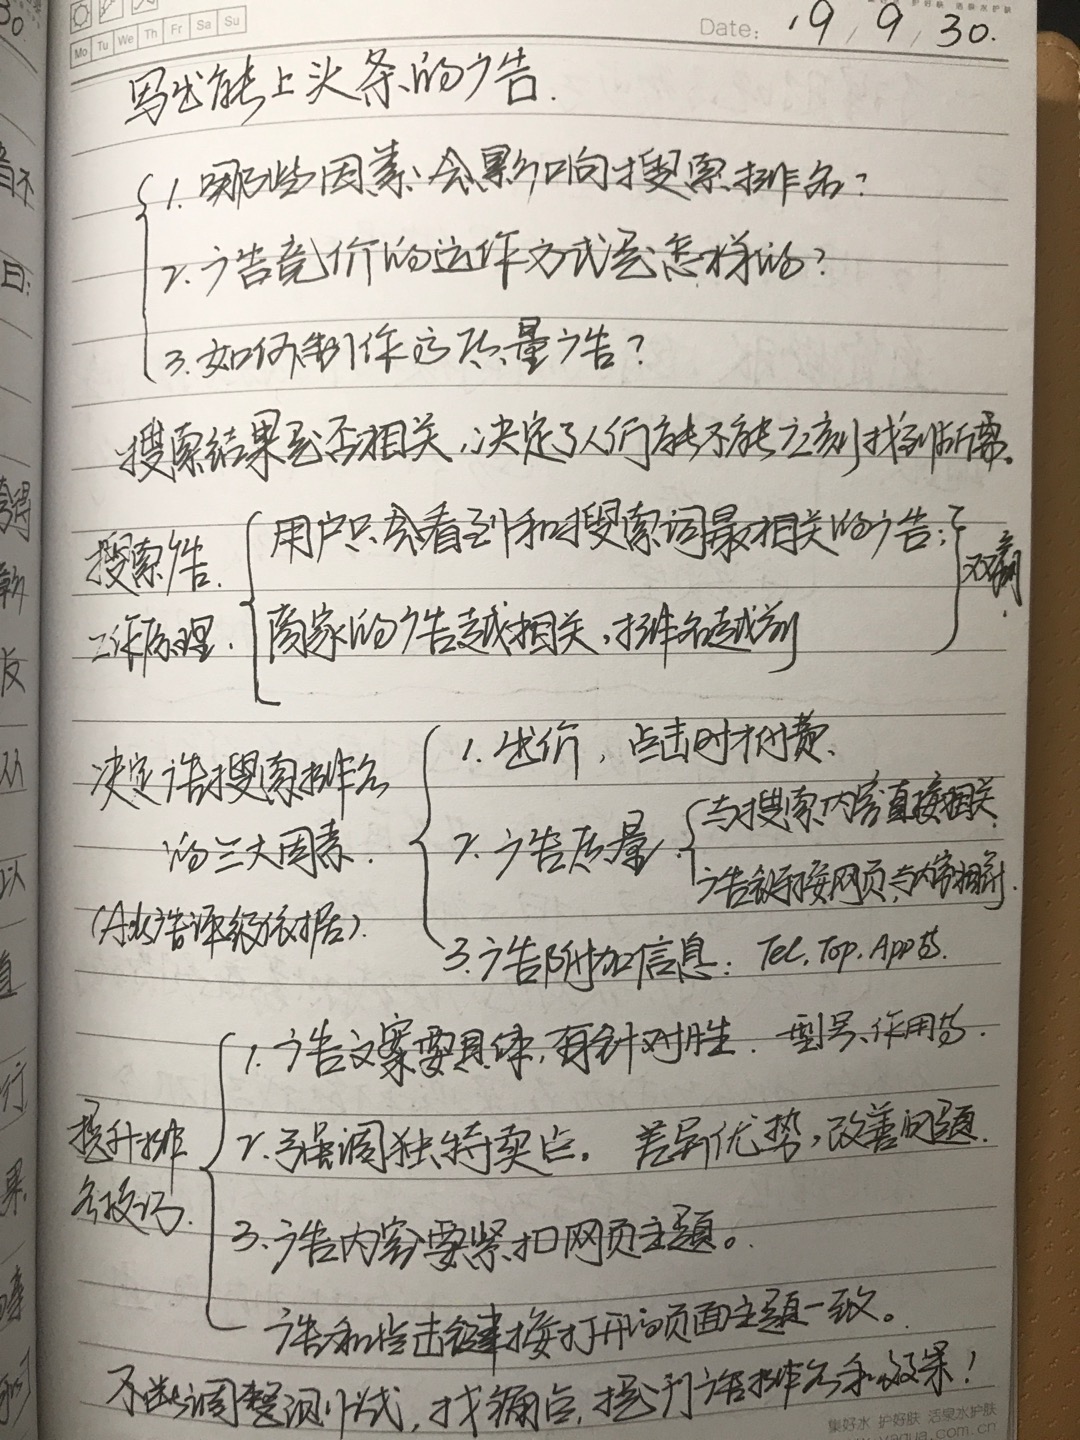 Mo Tu We Th Fr Sa Su
Date: 19/9/30.
写出能上头条的广告.
1. 哪些因素会影响搜索排名?
2. 广告竞价的运作方式是怎样的?
3. 如何制作高质量广告?
搜索结果是否相关,决定了人们能不能立刻找到所需。
搜索广告
工作原理.
用户只会看到和搜索词最相关的广告;
商家的广告越相关,排名越前
双赢.
决定广告搜索排名
的三大因素.
(Ads广告评级依据).
1. 出价, 点击时才付费.
2. 广告质量.
与搜索内容直接相关
广告链接网页,与内容相符.
3. 广告附加信息: Tel, Top, App等.
提升排
名技巧.
1. 广告文案要具体,有针对性. 型号、作用等.
2. 强调独特卖点。 差异优势,改善问题.
3. 广告内容要紧扣网页主题。
广告和点击链接打开的页面主题一致。
不断调整测试,找痛点,提升广告排名和效果!
集好水 护好肤 活泉水护肤